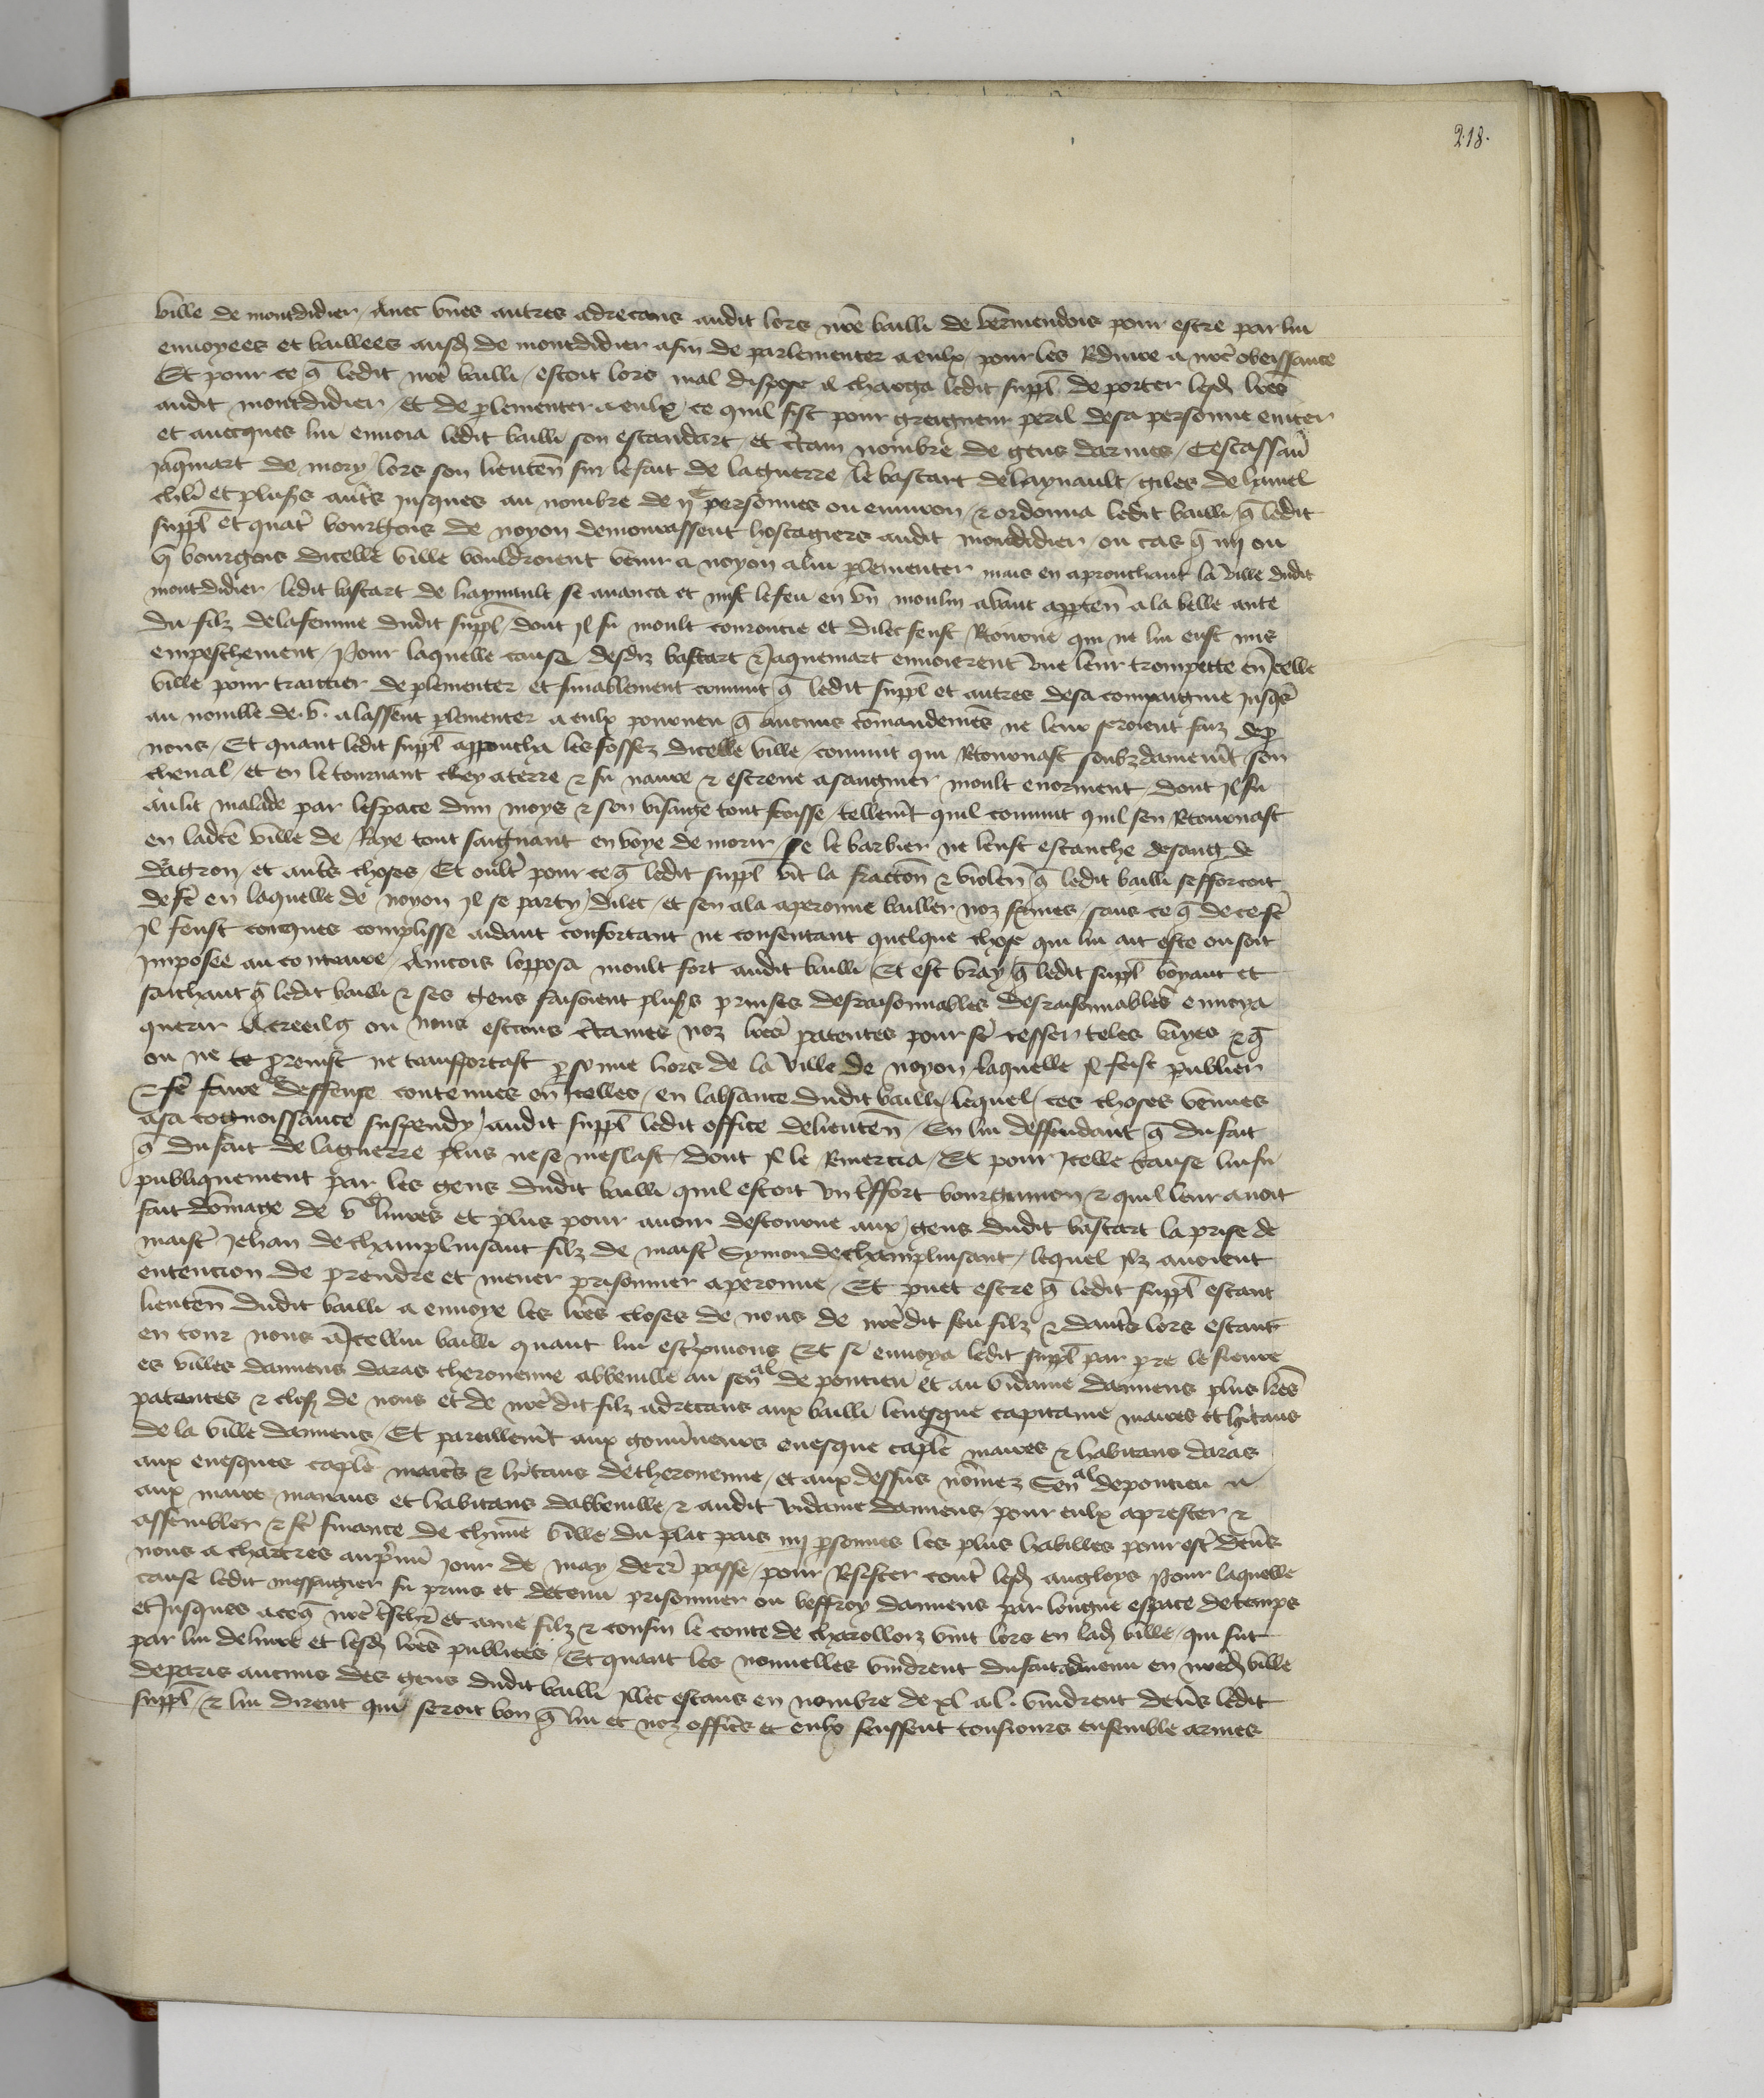 218.
ville de montdidier / auec vnes autres adrecans audit lors nre bailli de vermendois pour estre par lui
enuoyees et baillees ausd de montdidier afin de parlementer a eulx / pour les Rduire a nre obeissance
Et pour ce q̄ ledit nre bailli / estoit lors mal dispose il charga ledit suppl de porter lesd lres
audit montdidier / Et de plementer a eulx / ce quil fist pour greigneur peril de sa personne euiter
et auecques lui enuoia ledit bailli son estandart / et ctain nombre de gens darmes / Cestassau
Jaqmart de mory / lors son lieuten sur le fait de la guerre / le bastart de haynault / giles de hamel
chlr et plus̄s aut̄s Jusques au nombre de ij c personnes ou enuiron / & ordonna ledit bailli / q̄ ledit
suppl et quatr̄ bourgois de noyon demourassent hostagiers audit montdidier / ou cas q̄ iiij ou
vj bourgois dicelle ville vouldroient venir a noyon a lui plementer mais en aprouchant la ville dudit
montdidier / ledit bastart de haynault se auanca et mist le feu en vn moulin auant apparten a la belle ante
du filz de la femme dudit suppl / dont Il fu moult courroucie et dilec feust Rtourne qui ne lui eust mis
empeschement / Pour laquelle cause / desdiz bastart & Jaquemart enuoierent vne leur trompette en Icelle
ville pour traictier de plementer / et finablement conuint q̄ ledit suppl et autres de sa compaignie Jusqs
au nombre de .v. alassent plementer a eulx pourueu q̄ aucuns comandemēs ne leur seroient faiz de p
nous / Et quant ledit suppl approucha les fossez dicelle ville / conuint qui Rtournast soubzdainemt son
cheual / et en le tournant chey a terre & fu naure & escreue a saignier moult enorment / dont Il fu
au lit malade par lespace dun moys & son visaige tout froisse / tellemt quil conuint quil sen Rtournast
en ladce ville de / Roye tout saignant en voye de morir / se le barbier ne leust estanche de sang de
dragon / et aut̄s choses / Et oult̄ pour ce q̄ ledit suppl vit la fraccion & violen q̄ ledit bailli sefforcoit
de fe en laquelle de noyon Il se party / dilec / et sen ala a peronne bailler noz fermes / sans ce q̄ de ce fe
Il feust oncques complisse aidant confortant ne consentant quelque chose qui lui ait este ou soit
Imposee au contraire / Aincois lopposa moult fort audit bailli / Et est vray / q̄ ledit suppl voyant et
saichant q̄ ledit bailli & ses gens faisoient plus̄s prinses desraisonnables desraisonnables enuoya
querir a creeilg ou nous estions ctaines noz lres patentes pour fe cesser teles voyes & q̄
on ne te prenist ne transportast psonne hors de la ville de noyon laquelle Il feist publier
& fe faire les deffense contenues en Icelles / en labsance dudit bailli / lequel / ces choses venues
a sa cognoissance suspendy / audit suppl ledit office de lieuten / En lui deffendant / q̄ du fait
q̄ du fait de la guerre plus ne se meslast / dont Il le Rmercia / Et pour Icelle cause lui fu
publiquement par les gens dudit bailli quil estoit vn tres fort bourguinon / & quil leur auoit
fait domage de v c liures et plus pour auoir destourne aux / gens dudit bastart la prise de
maistr̄ Jehan de champluisant filz de maistr̄ Symon de champluisant / lequel Ilz auoient
entencion de prendre et mener prisonnier a peronne / Et puet estre q̄ ledit suppl estant
lieuten dudit bailli a enuoye les lres closes de nous de nredit feu filz & daut̄s lors estans
en tour nous a Icellui bailli quant lui escripuions / Et si enuoya ledit suppl par pre le sieure
es villes damiens daras theroenne abbeuille au sen al de pontieu et au vidame damiens plus̄s lres
patentes & closes de nous et de nredit filz adrecans aux bailli leuesque capitaine maires et hitans
de la ville damiens / Et pareillemt aux gouuneurs euesque caple maires & habitans daras
aux euesques caple maires & hitans de theroenne / et aux dessus nomez Sen al de pontieu &
aux maire manans et habitans dabbeuille & audit vidame damiens / pour eulx aprester &
assembler & fe finance de chune ville du plat pais iiij psonnes les plus habilles pour estr̄ deūs
nous a chartres au pmi Jour de may derr̄ passe / pour Resister cont̄ lesd angloys Pour laquelle
cause ledit messaigier fu prins et detenu prisonnier ou beffroy damiens par longue espace de temps
et Jusques a ce q̄ nre tschr̄ et ame filz & cousin le conte de charollois vint lors en lad ville / qui fut
par lui deliure et lesd lres publiees / Et quant les nouuelles vindrent du fait aduenu en nred ville
de paris aucuns des gens dudit bailli Illec estans en nombre de xl a l. vindrent deūs ledit
suppl / & lui dirent qui seroit bon q̄ lui et noz officrs et eulx feussent tousiours ensemble armes